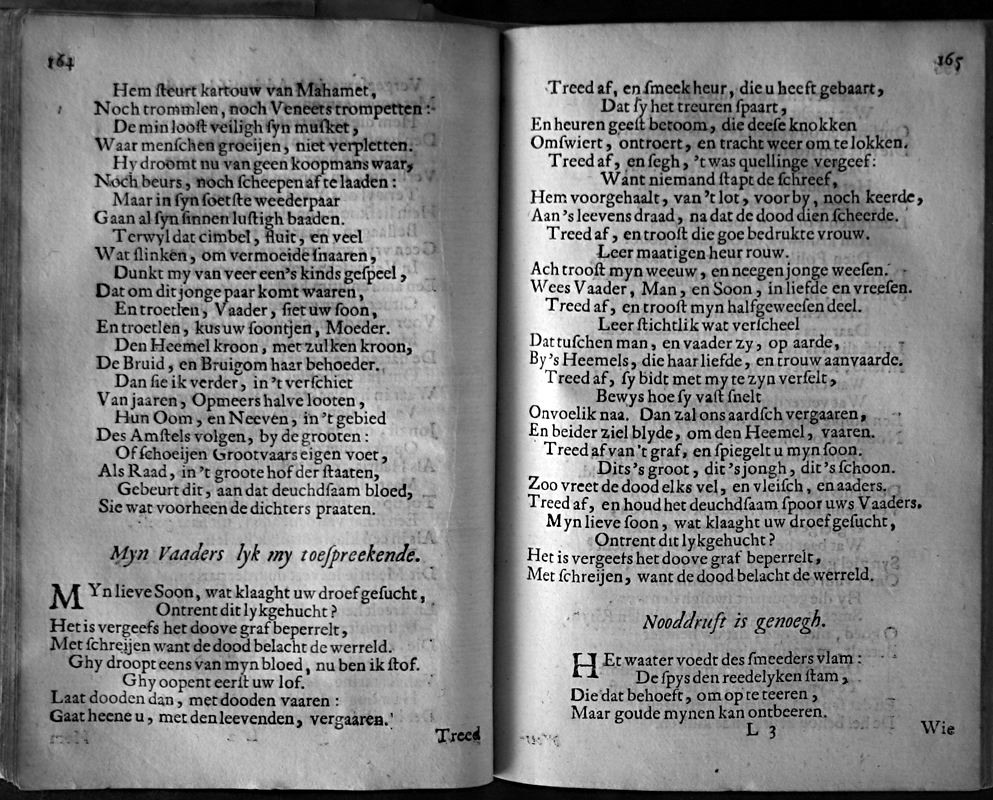 164
Hem ſteurt kartouw van Mahamet,
Noch trommlen, noch Veneets trompetten:
De min looſt veiligh ſyn muſket,
Waar menſchen groeijen, niet verpletten.
Hy droomt nu van geen koopmans waar,
Noch beurs, noch ſcheepen af te laaden:
Maar in ſyn ſoetſte weederpaar
Gaan al ſyn ſinnen luſtigh baaden.
Terwyl dat cimbel, fluit, en veel
Wat ſlinken, om vermoeide ſnaaren,
Dunkt my van veer een's kinds geſpeel,
Dat om dit jonge paar komt waaren,
En troetlen, Vaader, ſiet uw ſoon,
En troetlen, kus uw ſoontjen, Moeder.
Den Heemel kroon, met zulken kroon,
De Bruid, en Bruigom haar behoeder.
Dan ſie ik verder, in 't verſchiet
Van jaaren, Opmeers halve looten,
Hun Oom, en Neeven, in 't gebied
Des Amſtels volgen, by de grooten:
Of ſchoeijen Grootvaars eigen voet,
Als Raad, in 't groote hof der ſtaaten,
Gebeurt dit, aan dat deuchdſaam bloed,
Sie wat voorheen de dichters praaten.
Myn Vaaders lyk my toeſpreekende.
MYn lieve Soon, wat klaaght uw droef geſucht,
Ontrent dit lykgehucht?
Het is vergeefs het doove graf beperrelt,
Met ſchreijen want de dood belacht de werreld.
Ghy droopt eens van myn bloed, nu ben ik ſtof.
Ghy oopent eerſt uw lof.
Laat dooden dan, met dooden vaaren:
Gaat heene u, met den leevenden, vergaaren.
Treed
165
Treed af, en ſmeek heur, die u heeft gebaart,
Dat ſy het treuren ſpaart,
En heuren geeſt betoom, die deeſe knokken
Omſwiert, ontroert, en tracht weer om te lokken.
Treed af, en ſegh, 't was quellinge vergeef:
Want niemand ſtapt de ſchreef,
Hem voorgehaalt, van 't lot, voor by, noch keerde,
Aan 's leevens draad, na dat de dood dien ſcheerde.
Treed af, en trooſt die goe bedrukte vrouw.
Leer maatigen heur rouw.
Ach trooſt myn weeuw, en neegen jonge weeſen.
Wees Vaader, Man, en Soon, in liefde en vreeſen.
Treed af, en trooſt myn halfgeweeſen deel.
Leer ſtichtlik wat verſcheel
Dat tuſchen man, en vaader zy, op aarde,
By 's Heemels, die haar liefde, en trouw aanvaarde.
Treed af, ſy bidt met my te zyn verſelt,
Bewys hoe ſy vaſt ſnelt
Onvoelik naa. Dan zal ons aardſch vergaaren,
En beider ziel blyde, om den Heemel, vaaren.
Treed af van 't graf, en ſpiegelt u myn ſoon.
Dits 's groot, dit 's jongh, dit 's ſchoon.
Zoo vreet de dood elks vel, en vleiſch, en aaders.
Treed af, en houd het deuchdſaam ſpoor uws Vaaders.
Myn lieve ſoon, wat klaaght uw droef geſucht,
Ontrent dit lykgehucht?
Het is vergeefs het doove graf beperrelt,
Met ſchreijen, want de dood belacht de werreld.
Nooddruft is genoegh.
HEt waater voedt des ſmeeders vlam:
De ſpys den reedelyken ſtam,
Die dat behoeft, om op te teeren,
Maar goude mynen kan ontbeeren.
L 3
Wie